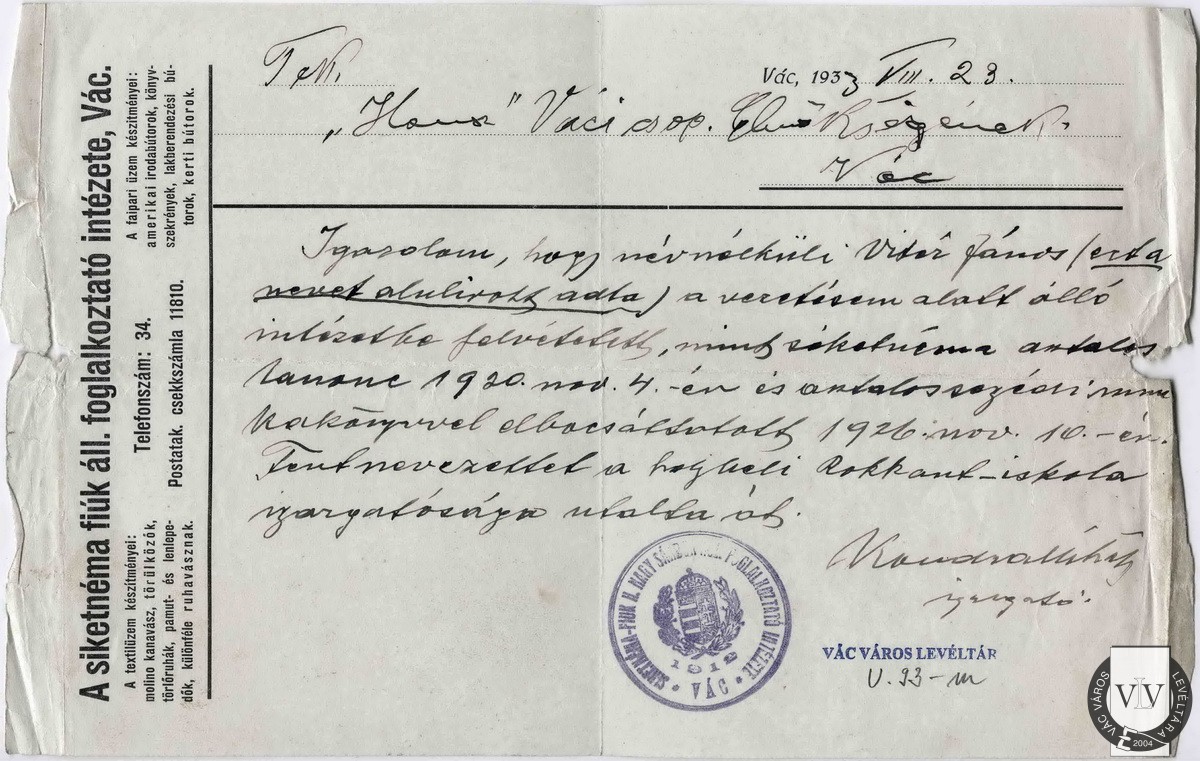 A siketnéma fiúk áll. foglalkoztató intézete, Vác.
Telefonszám: 34.
Postatak. csekkszámla 11810.
A textilüzem készítményei:
molino kanavász, törülközők,
törlőruhák, pamut- és lenlepe-
dők, különféle ruhavásznak.
A faipari üzem készítményei:
amerikai irodabútorok, könyv-
szekrények, lakberendezési bú-
torok, kerti bútorok.
Tek.
Vác, 1933 VIII. 23.
Váci csop. Elnökségének
Vác
Igazolom, hogy névnélküli Vitéz János (ezt a
nevet alulirott adta) a vezetésem alatt álló
intézetbe felvétetett, mint siketnéma asztalos
tanonc 1920. nov. 4.-én és asztalossegédi mun
kakönyvvel elbocsáttatott 1926. nov. 10.-én.
Fentnevezettet a helybeli Rokkant-iskola
igazgatósága utalta át.
igazgató.
FOGLALKOZTATÓ INTÉZETE
1912
VÁC
VÁC VÁROS LEVÉLTÁR
V. 93-m
VÁC VÁROS LEVÉLTÁRA
VLV
2004